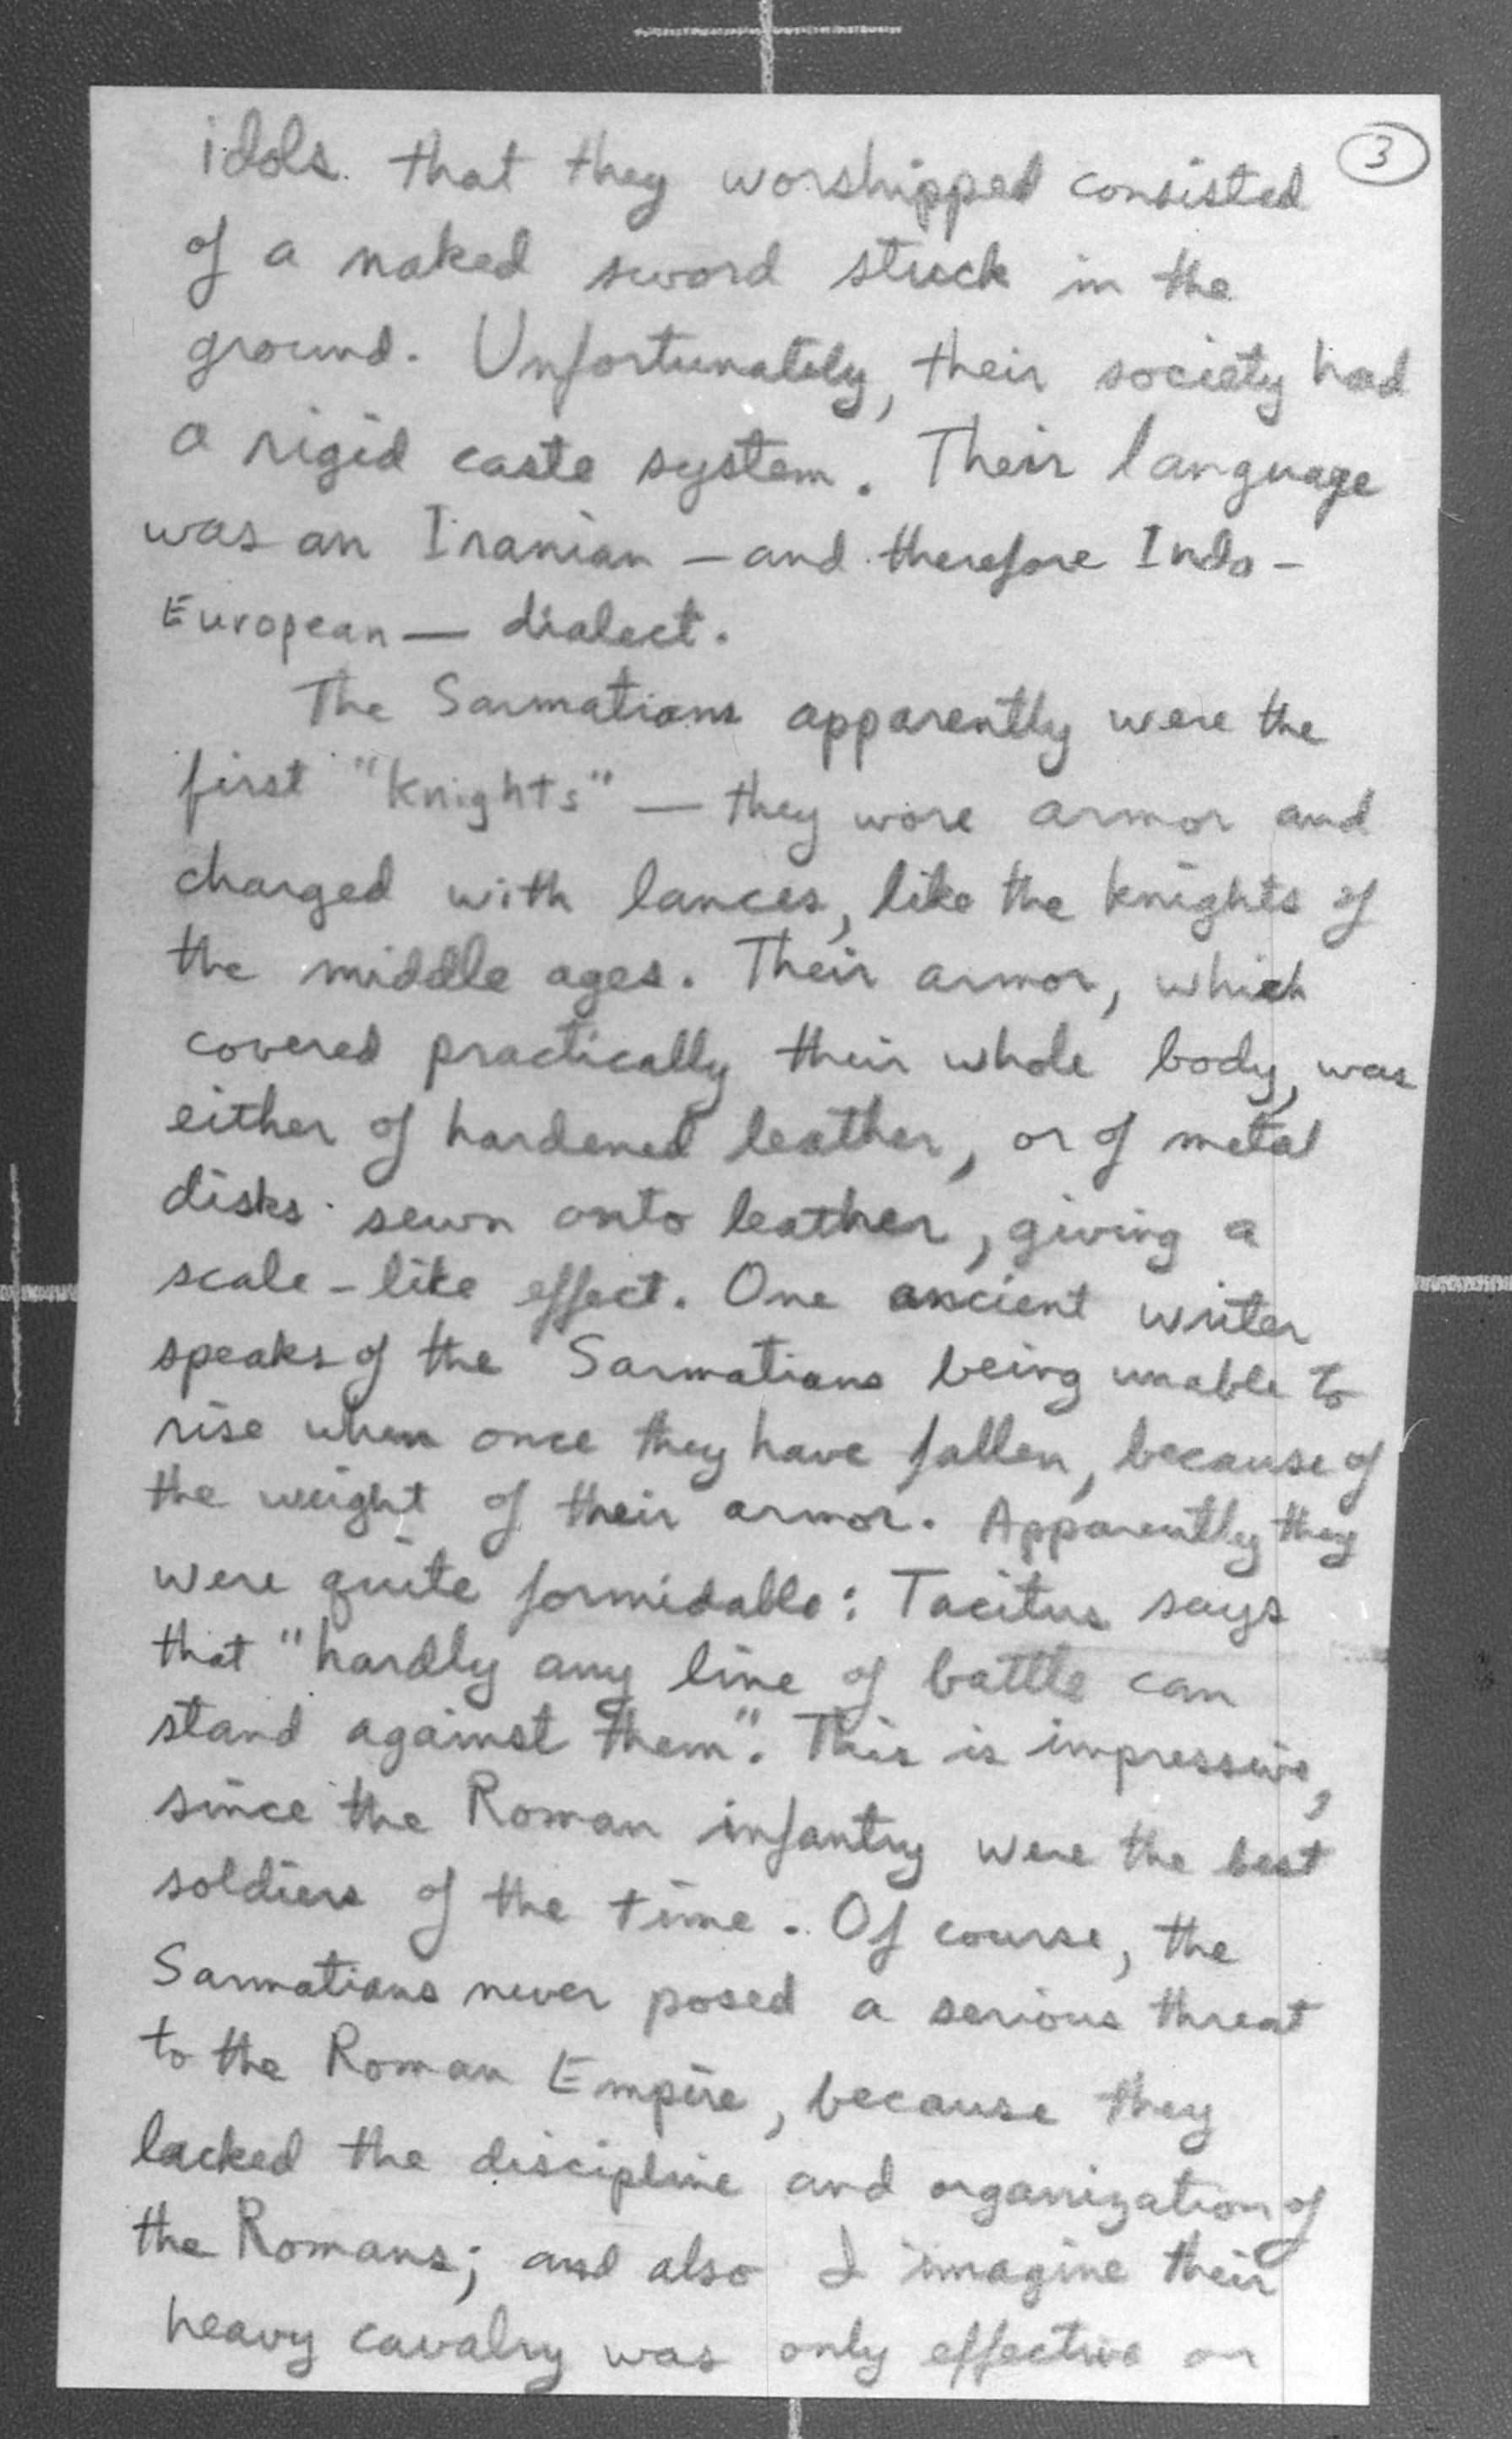 3
idols that they worshipped consisted
of a naked sword stuck in the
ground. Unfortunately, their society had
a rigid caste system. Their language
was an Iranian — and therefore Indo-
European — dialect.
The Sarmatians apparently were the
first "knights" — they wore armor and
charged with lances, like the knights of
the middle ages. Their armor, which
covered practically their whole body, was
either of hardened leather, or of metal
disks sewn onto leather, giving a
scale-like effect. One ancient writer
speaks of the Sarmatians being unable to
rise when once they have fallen, because of
the weight of their armor. Apparently they
were quite formidable: Tacitus says
that "hardly any line of battle can
stand against them". This is impressive,
since the Roman infantry were the best
soldiers of the time. Of course, the
Sarmatians never posed a serious threat
to the Roman Empire, because they
lacked the discipline and organization of
the Romans; and also I imagine their
heavy cavalry was only effective on